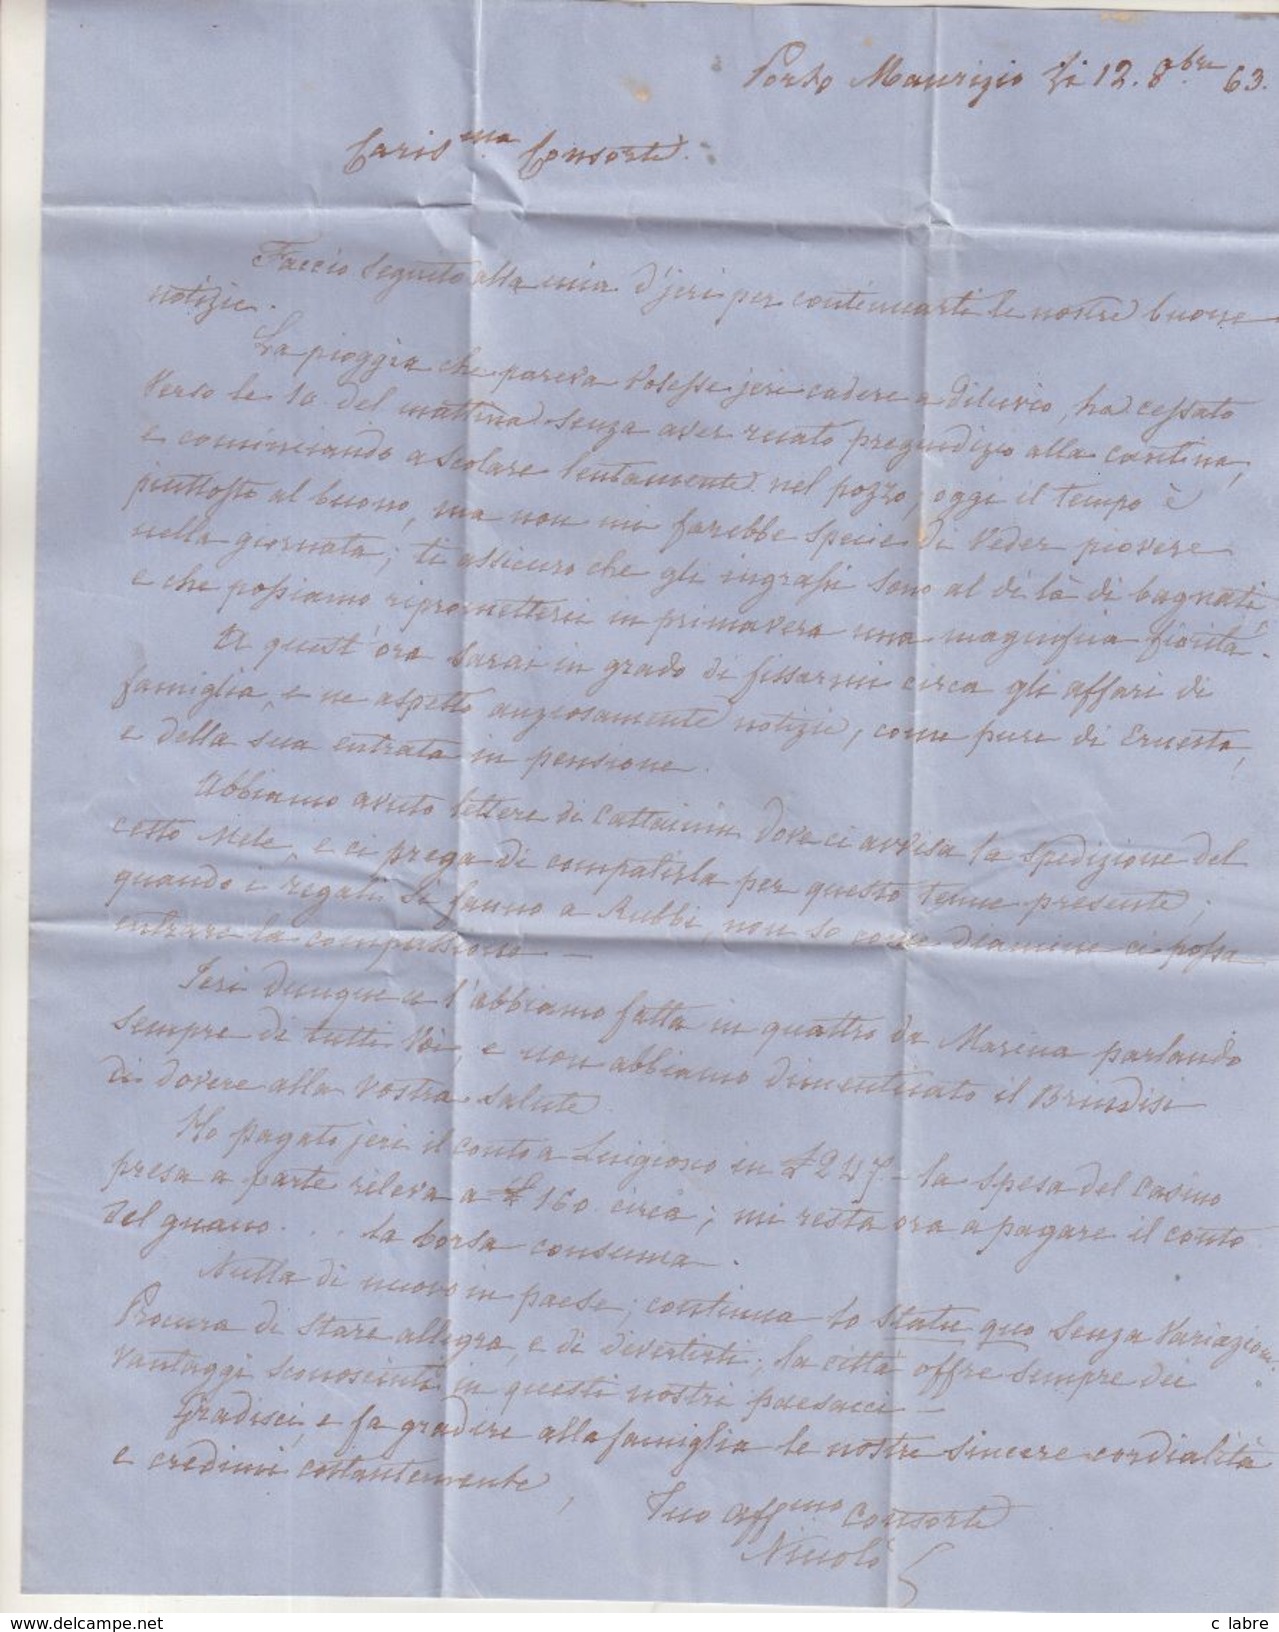 Porto Maurizio li 12. 8bre 63.
Carisma Consorte.
Faccio seguito alla mia d'jeri per continuarti le nostre buone
notizie.
La pioggia che pareva volesse jeri cadere a diluvio, ha cessato
verso le 10 del mattino senza aver recato pregiudizio alla cantina,
e cominciando a scolare lentamente nel pozzo, oggi il tempo è
piuttosto al buono, ma non mi farebbe specie di veder piovere
nella giornata; ti assicuro che gli ingrassi sono al di là di bagnati,
e che possiamo riprometterci in primavera una magnifica fiorita.
A quest'ora sarai in grado di fissarmi circa gli affari di
famiglia, e ne aspetto anziosamente notizie, come pure di Ernesta,
e della sua entrata in pensione.
Abbiamo avuto lettere di Cattainin dove ci avvisa la spedizione del
cetto Miele, e ci prega di compatirla per questo tenue presente;
quando i regali si fanno a Rubbi, non so come diamine ci possa
entrare la compassione —
Jeri dunque l'abbiamo fatta in quattro da Marina parlando
sempre di tutti Voi, e non abbiamo dimenticato il Brindisi
di dovere alla vostra salute.
Ho pagato jeri il conto a Luigione in £ 247. — la spesa del Casino
presa a parte rileva a £ 160. circa; mi resta ora a pagare il conto
del guano ... la borsa consuma.
Nulla di nuovo in paese; continua lo statu quo senza variazioni.
Procura di stare allegra, e di divertirti; la città offre sempre dei
vantaggi sconosciuti in questi nostri paesacci —
Gradisci, e fa gradire alla famiglia le nostre sincere cordialità
e credimi costantemente,
Tuo affmo consorte
Nicolò
www.delcampe.net
c labre